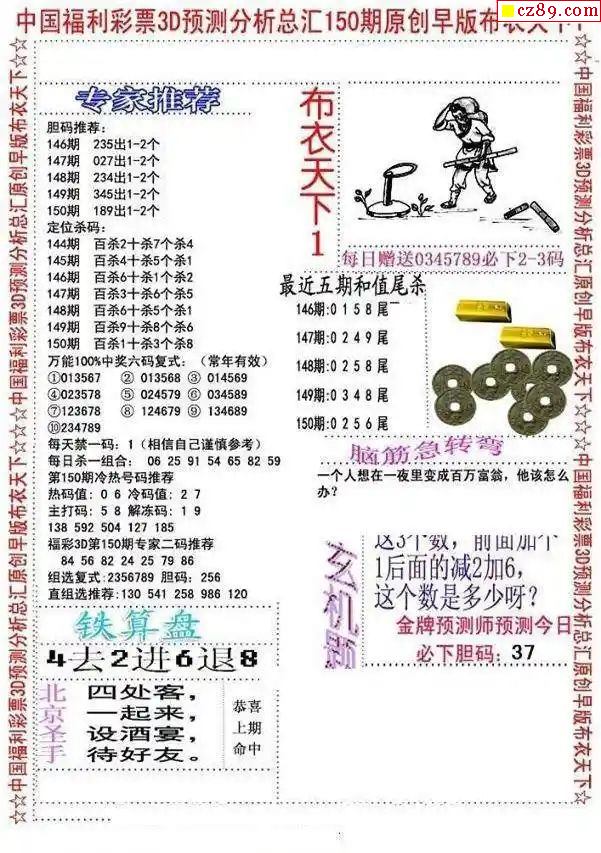 中国福利彩票3D预测分析总汇150期原创早版布衣天下
cz89.com
☆中国福利彩票3D预测分析总汇原创早版布衣天下☆
专家推荐
胆码推荐:
146期 235出1-2个
147期 027出1-2个
148期 234出1-2个
149期 345出1-2个
150期 189出1-2个
定位杀码:
144期 百杀2十杀7个杀4
145期 百杀4十杀5个杀1
146期 百杀6十杀1个杀2
147期 百杀3十杀6个杀5
148期 百杀6十杀5个杀1
149期 百杀9十杀8个杀6
150期 百杀1十杀3个杀8
万能100%中奖六码复式:(常年有效)
①013567 ②013568 ③014569
④023578 ⑤024579 ⑥034589
⑦123678 ⑧124679 ⑨134689
⑩234789
每天禁一码:1(相信自己谨慎参考)
每日杀一组合: 06 25 91 54 65 82 59
第150期冷热号码推荐
热码值:0 6 冷码值:2 7
主打码:5 8 解冻码:1 9
138 592 504 127 185
福彩3D第150期专家二码推荐
84 56 82 24 25 79 86
组选复式:2356789 胆码:256
直组选推荐:130 541 258 986 190
铁算盘
4去2进6退8
北京圣手
四处客,
一起来,
设酒宴,
待好友。
恭喜
上期
命中
布衣天下1
每日赠送0345789必下2-3码
最近五期和值尾杀
146期:0 1 5 8 尾
147期:0 2 4 9 尾
148期:0 2 5 8 尾
149期:0 3 4 8 尾
150期:0 2 5 6 尾
脑筋急转弯
一个人想在一夜里变成百万富翁,他该怎么
办?
玄机题
这3个数,前面加个
1后面的减2加6,
这个数是多少呀?
金牌预测师预测今日
必下胆码:37
☆中国福利彩票3D预测分析总汇原创早版布衣天下☆